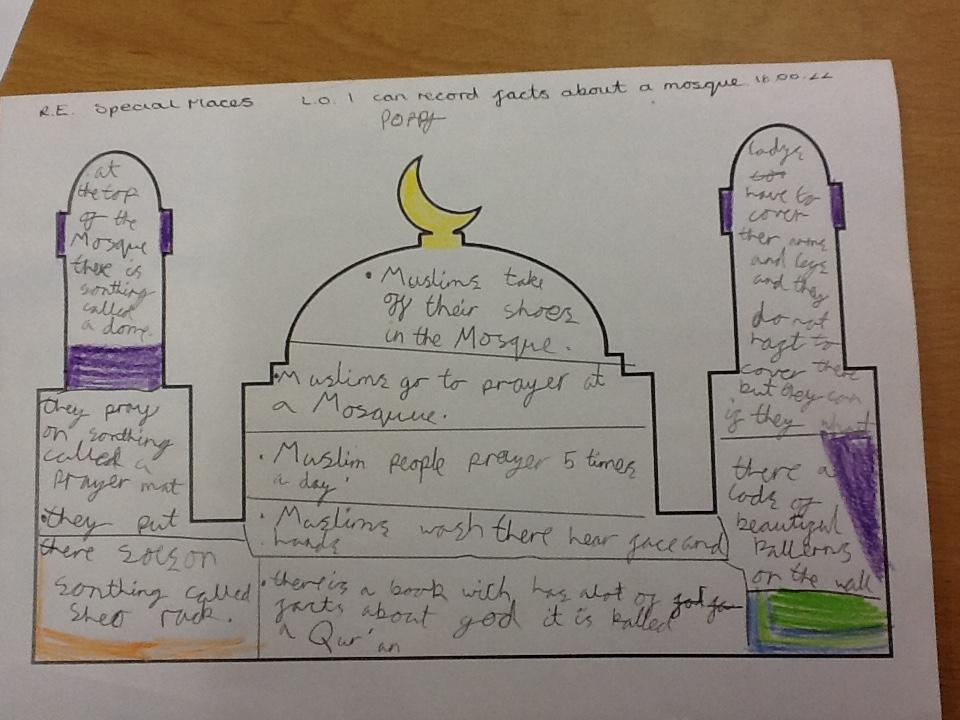 R.E. Special Places L.O. I can record facts about a mosque. 16.00.22
POPPY
at
the top
of the
Mosque
there is
sonthing
called
a dome.
they pray
on sonthing
called a
prayer mat
• they put
there soes on
sonthing called
sheo rack.
• Muslims take
off their shoes
in the Mosque.
• Muslims go to prayer at
a Mosquue.
• Muslim people prayer 5 times
a day.
• Muslims wash there hear face and
hands
• there is a book with, has alot of
facts about god it is kalled
a Qur'an
ladys
have to
cover
ther arms
and legs
and they
do not
haft to
cover there
but they can
if they what
there a
lods of
beautiful
patterns
on the wall